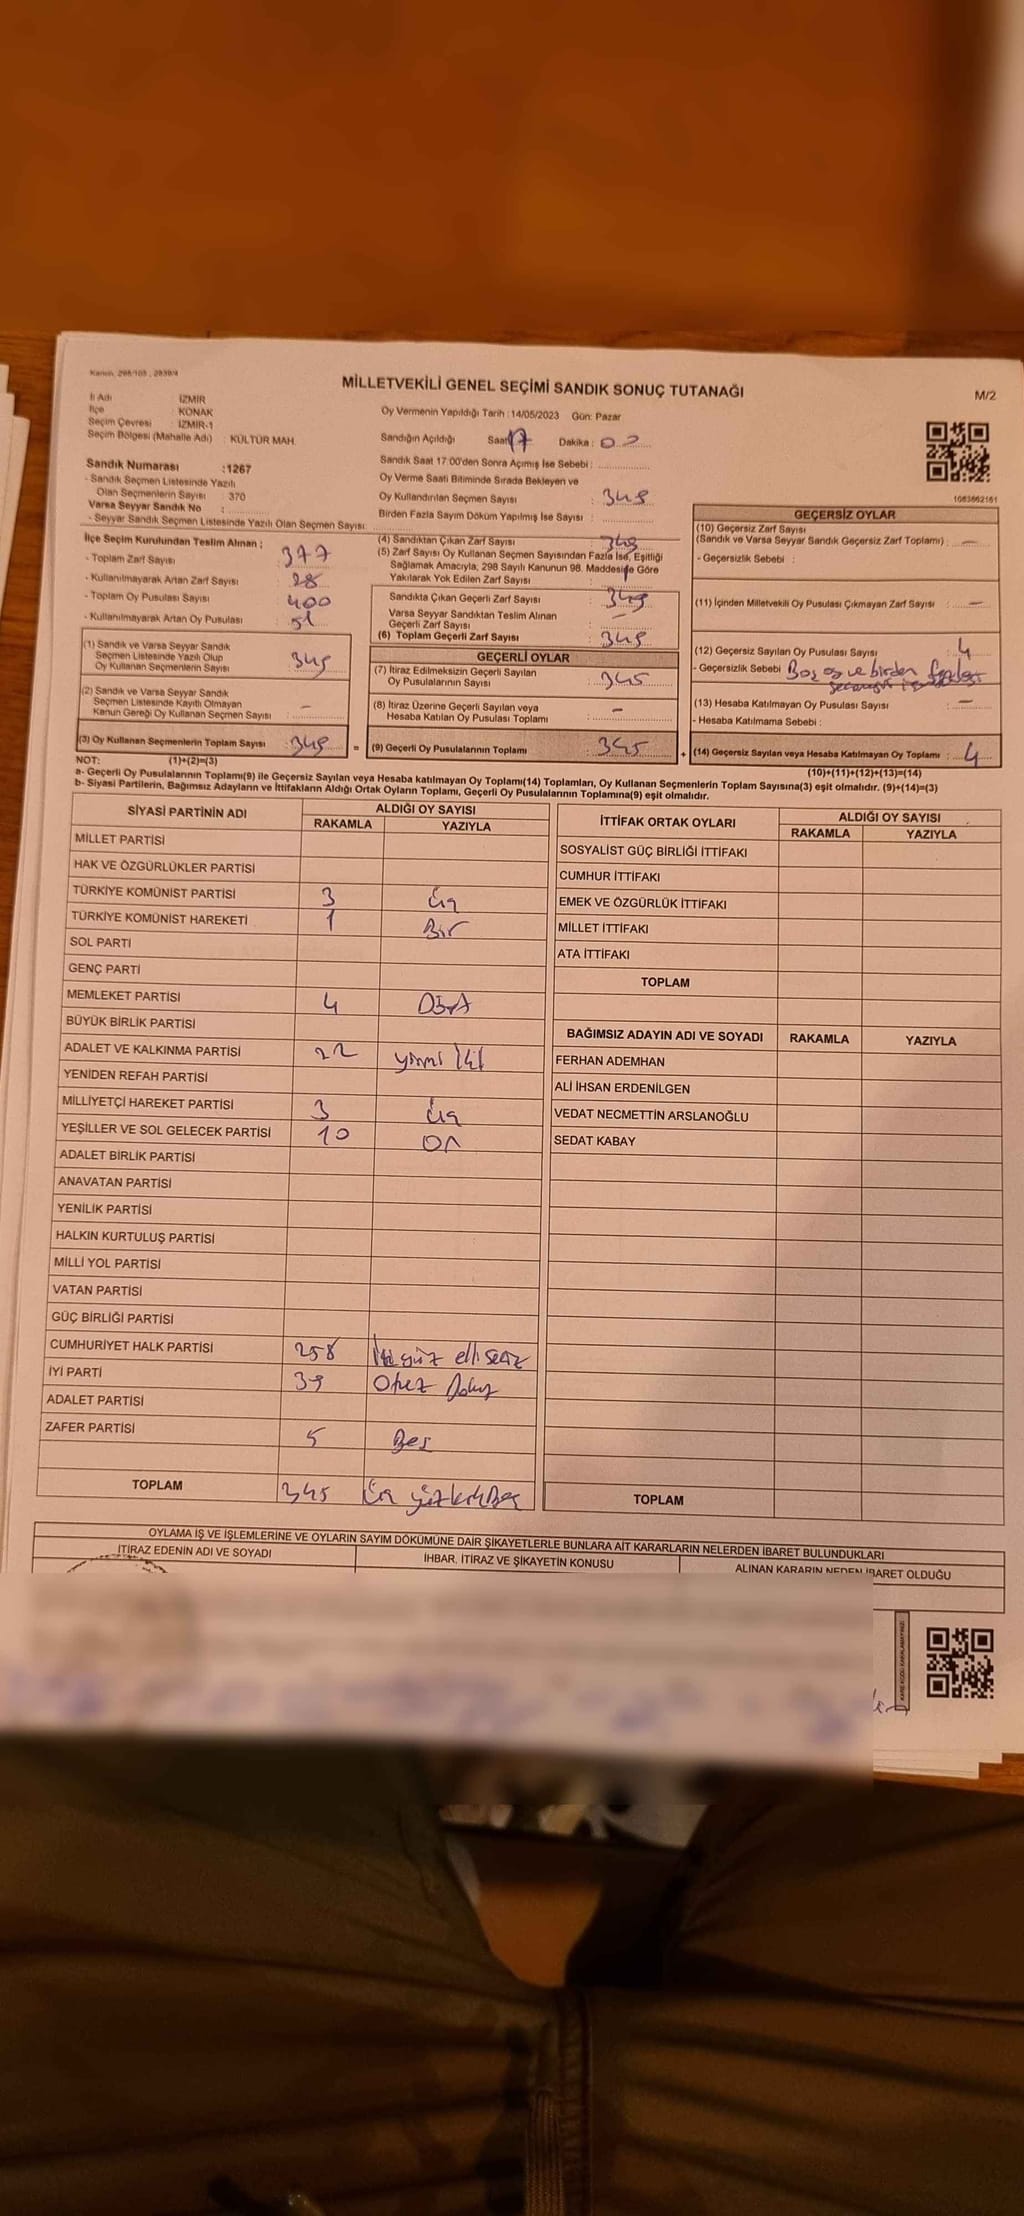 Kanun, 298/105 , 2839/4
MİLLETVEKİLİ GENEL SEÇİMİ SANDIK SONUÇ TUTANAĞI
M/2
İl Adı : İZMİR
İlçe : KONAK
Seçim Çevresi : İZMİR-1
Seçim Bölgesi (Mahalle Adı) : KÜLTÜR MAH.
Oy Vermenin Yapıldığı Tarih : 14/05/2023 Gün: Pazar
Sandığın Açıldığı Saat 17 Dakika :
Sandık Saat 17:00'den Sonra Açımış İse Sebebi :
Oy Verme Saati Bitiminde Sırada Bekleyen ve
Oy Kullandırılan Seçmen Sayısı : 349
Birden Fazla Sayım Döküm Yapılmış İse Sayısı :
1083662161
Sandık Numarası :1267
- Sandık Seçmen Listesinde Yazılı
Olan Seçmenlerin Sayısı : 370
Varsa Seyyar Sandık No :
- Seyyar Sandık Seçmen Listesinde Yazılı Olan Seçmen Sayısı:
İlçe Seçim Kurulundan Teslim Alınan ;
- Toplam Zarf Sayısı : 377
- Kullanılmayarak Artan Zarf Sayısı : 28
- Toplam Oy Pusulası Sayısı : 400
- Kullanılmayarak Artan Oy Pusulası : 51
(1) Sandık ve Varsa Seyyar Sandık
Seçmen Listesinde Yazılı Olup
Oy Kullanan Seçmenlerin Sayısı : 349
(2) Sandık ve Varsa Seyyar Sandık
Seçmen Listesinde Kayıtlı Olmayan
Kanun Gereği Oy Kullanan Seçmen Sayısı : -
(3) Oy Kullanan Seçmenlerin Toplam Sayısı : 349
(4) Sandıktan Çıkan Zarf Sayısı : 349
(5) Zarf Sayısı Oy Kullanan Seçmen Sayısından Fazla İse, Eşitliği
Sağlamak Amacıyla, 298 Sayılı Kanunun 98. Maddesine Göre
Yakılarak Yok Edilen Zarf Sayısı :
Sandıkta Çıkan Geçerli Zarf Sayısı : 349
Varsa Seyyar Sandıktan Teslim Alınan
Geçerli Zarf Sayısı : -
(6) Toplam Geçerli Zarf Sayısı : 349
GEÇERLİ OYLAR
(7) İtiraz Edilmeksizin Geçerli Sayılan
Oy Pusulalarının Sayısı : 345
(8) İtiraz Üzerine Geçerli Sayılan veya
Hesaba Katılan Oy Pusulası Toplamı : -
= (9) Geçerli Oy Pusulalarının Toplamı : 345
GEÇERSİZ OYLAR
(10) Geçersiz Zarf Sayısı
(Sandık ve Varsa Seyyar Sandık Geçersiz Zarf Toplamı) : -
- Geçersizlik Sebebi :
(11) İçinden Milletvekili Oy Pusulası Çıkmayan Zarf Sayısı : -
(12) Geçersiz Sayılan Oy Pusulası Sayısı : 4
- Geçersizlik Sebebi Boş oy ve birden fazla
(13) Hesaba Katılmayan Oy Pusulası Sayısı : -
- Hesaba Katılmama Sebebi :
+ (14) Geçersiz Sayılan veya Hesaba Katılmayan Oy Toplamı : 4
NOT: (1)+(2)=(3)
(10)+(11)+(12)+(13)=(14)
a- Geçerli Oy Pusulalarının Toplamı(9) ile Geçersiz Sayılan veya Hesaba katılmayan Oy Toplamı(14) Toplamları, Oy Kullanan Seçmenlerin Toplam Sayısına(3) eşit olmalıdır. (9)+(14)=(3)
b- Siyasi Partilerin, Bağımsız Adayların ve İttifakların Aldığı Ortak Oyların Toplamı, Geçerli Oy Pusulalarının Toplamına(9) eşit olmalıdır.
SİYASİ PARTİNİN ADI ALDIĞI OY SAYISI
RAKAMLA YAZIYLA
MİLLET PARTİSİ
HAK VE ÖZGÜRLÜKLER PARTİSİ
TÜRKİYE KOMÜNİST PARTİSİ 3 Üç
TÜRKİYE KOMÜNİST HAREKETİ 1 Bir
SOL PARTİ
GENÇ PARTİ
MEMLEKET PARTİSİ 4 Dört
BÜYÜK BİRLİK PARTİSİ
ADALET VE KALKINMA PARTİSİ 22 yirmi iki
YENİDEN REFAH PARTİSİ
MİLLİYETÇİ HAREKET PARTİSİ 3 Üç
YEŞİLLER VE SOL GELECEK PARTİSİ 10 On
ADALET BİRLİK PARTİSİ
ANAVATAN PARTİSİ
YENİLİK PARTİSİ
HALKIN KURTULUŞ PARTİSİ
MİLLİ YOL PARTİSİ
VATAN PARTİSİ
GÜÇ BİRLİĞİ PARTİSİ
CUMHURİYET HALK PARTİSİ 258 İki yüz elli sekiz
İYİ PARTİ 39 Otuz Dokuz
ADALET PARTİSİ
ZAFER PARTİSİ 5 Beş
TOPLAM 345 Üç yüz kırk Beş
İTTİFAK ORTAK OYLARI ALDIĞI OY SAYISI
RAKAMLA YAZIYLA
SOSYALİST GÜÇ BİRLİĞİ İTTİFAKI
CUMHUR İTTİFAKI
EMEK VE ÖZGÜRLÜK İTTİFAKI
MİLLET İTTİFAKI
ATA İTTİFAKI
TOPLAM
BAĞIMSIZ ADAYIN ADI VE SOYADI RAKAMLA YAZIYLA
FERHAN ADEMHAN
ALİ İHSAN ERDENİLGEN
VEDAT NECMETTİN ARSLANOĞLU
SEDAT KABAY
TOPLAM
OYLAMA İŞ VE İŞLEMLERİNE VE OYLARIN SAYIM DÖKÜMÜNE DAİR ŞİKAYETLERLE BUNLARA AİT KARARLARIN NELERDEN İBARET BULUNDUKLARI
İTİRAZ EDENİN ADI VE SOYADI İHBAR, İTİRAZ VE ŞİKAYETİN KONUSU ALINAN KARARIN NEDEN İBARET OLDUĞU